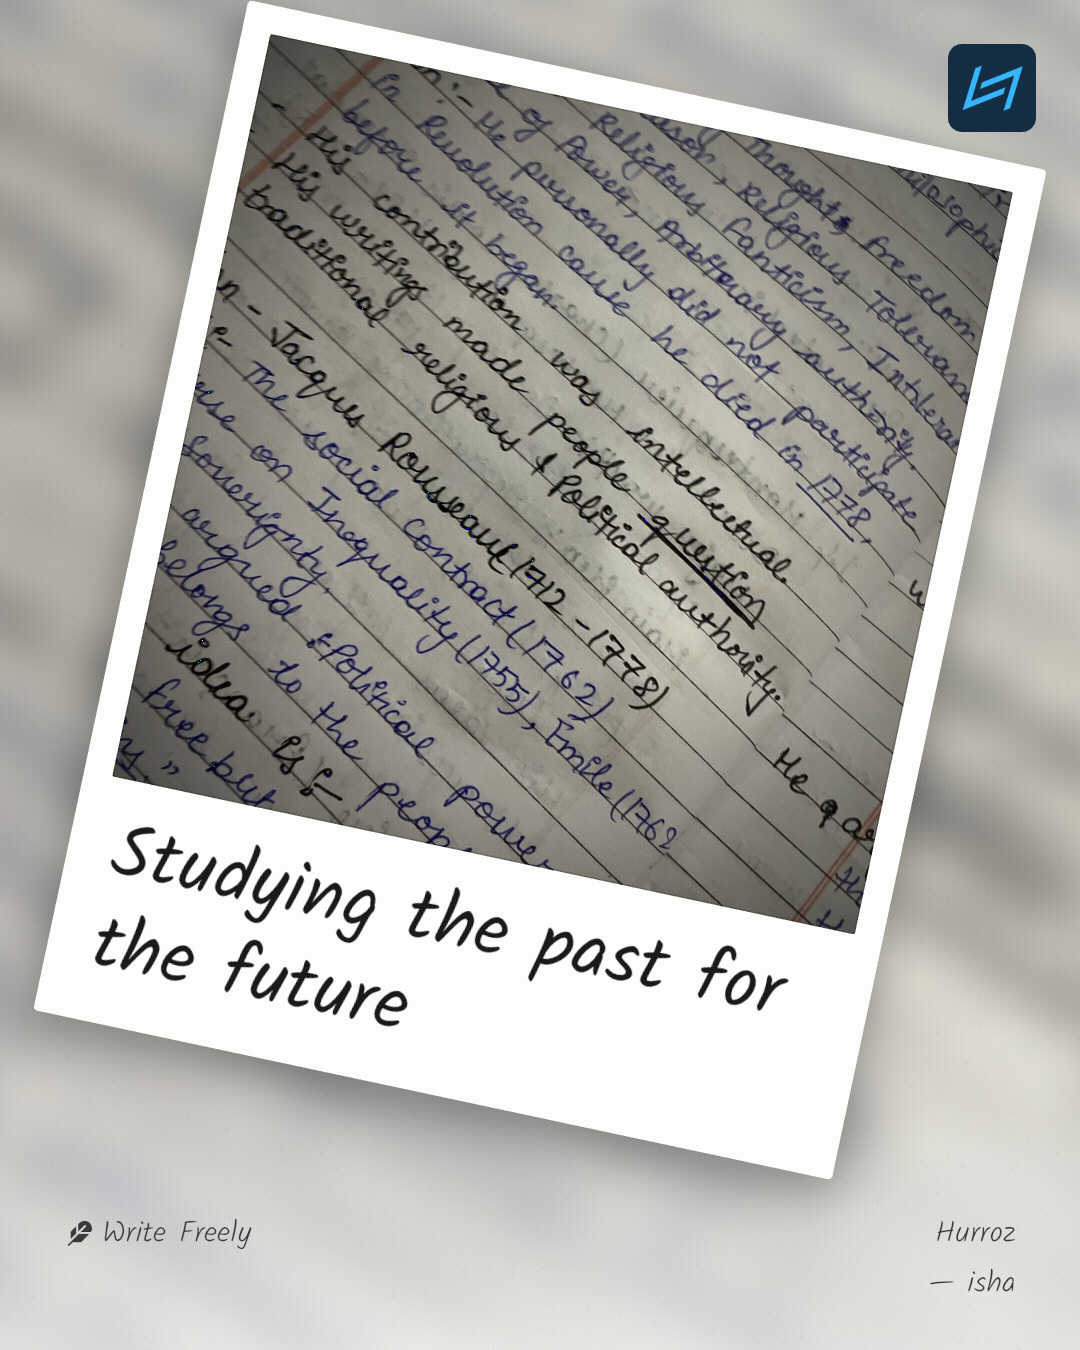 Thoughts, freedom
Religious Toleran
Religious fanticism, Intlera
of Power, Arbitrary authority.
:- He personally did not participate
In Revolution cause he died in 1778.
before it began.
- His contribution was intellectual.
His writings made people question
traditional religious & Political authority.
n - Jacques Rousseau (1712 - 1778)
The social contract (1762)
on Inequality (1755), Emile (1762
Soverignty.
argued :- Political power
belongs to the peop
idea is :-
free but
y."
He
Studying the past for
the future
Write Freely
Hurroz
— isha